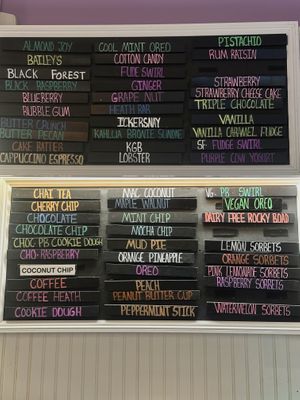 ALMOND JOY
BAILEY'S
BLACK FOREST
BLACK RASPBERRY
BLUEBERRY
BUBBLE GUM
BUTTER CRUNCH
BUTTER PECAN
CAKE BATTER
CAPPUCCINO ESPRESSO
COOL MINT OREO
COTTON CANDY
FUDE SWIRL
GINGER
GRAPE NUT
HEATH BAR
KAHLUA BROWNIE SUNDAE
KGB
LOBSTER
PISTACHIO
RUM RAISIN
STRAWBERRY
STRAWBERRY CHEESE CAKE
TRIPLE CHOCOLATE
VANILLA
VANILLA CARAMEL FUDGE
SF FUDGE SWIRL
PURPLE COW YOGURT
CHAI TEA
CHERRY CHIP
CHOCOLATE
CHOCOLATE CHIP
CHOC PB COOKIE DOUGH
CHO-RASPBERRY
COCONUT CHIP
COFFEE
COFFEE HEATH
COOKIE DOUGH
MAC COCONUT
MAPLE WALNUT
MINT CHIP
MOCHA CHIP
MUD PIE
ORANGE PINEAPPLE
OREO
PEACH
PEANUT BUTTER CUP
PEPPERMINT STICK
VG. PB SWIRL
VEGAN OREO
DAIRY FREE ROCKY ROAD
LEMON SORBETS
ORANGE SORBETS
PINK LEMONADE SORBETS
RASPBERRY SORBETS
WATERMELON SORBETS